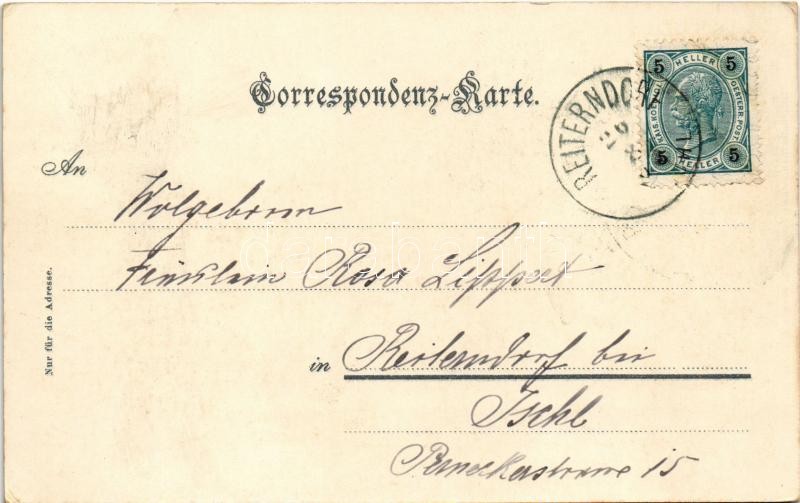 Correspondenz-Karte.
5 HELLER 5
KAIS. KOEN. OESTERR. POST
5 HELLER 5
REITERNDORF
An
Wolgeboren
Fräulein Rosa Lippert
in Reiterndorf bei
Ischl
15
Nur für die Adresse.